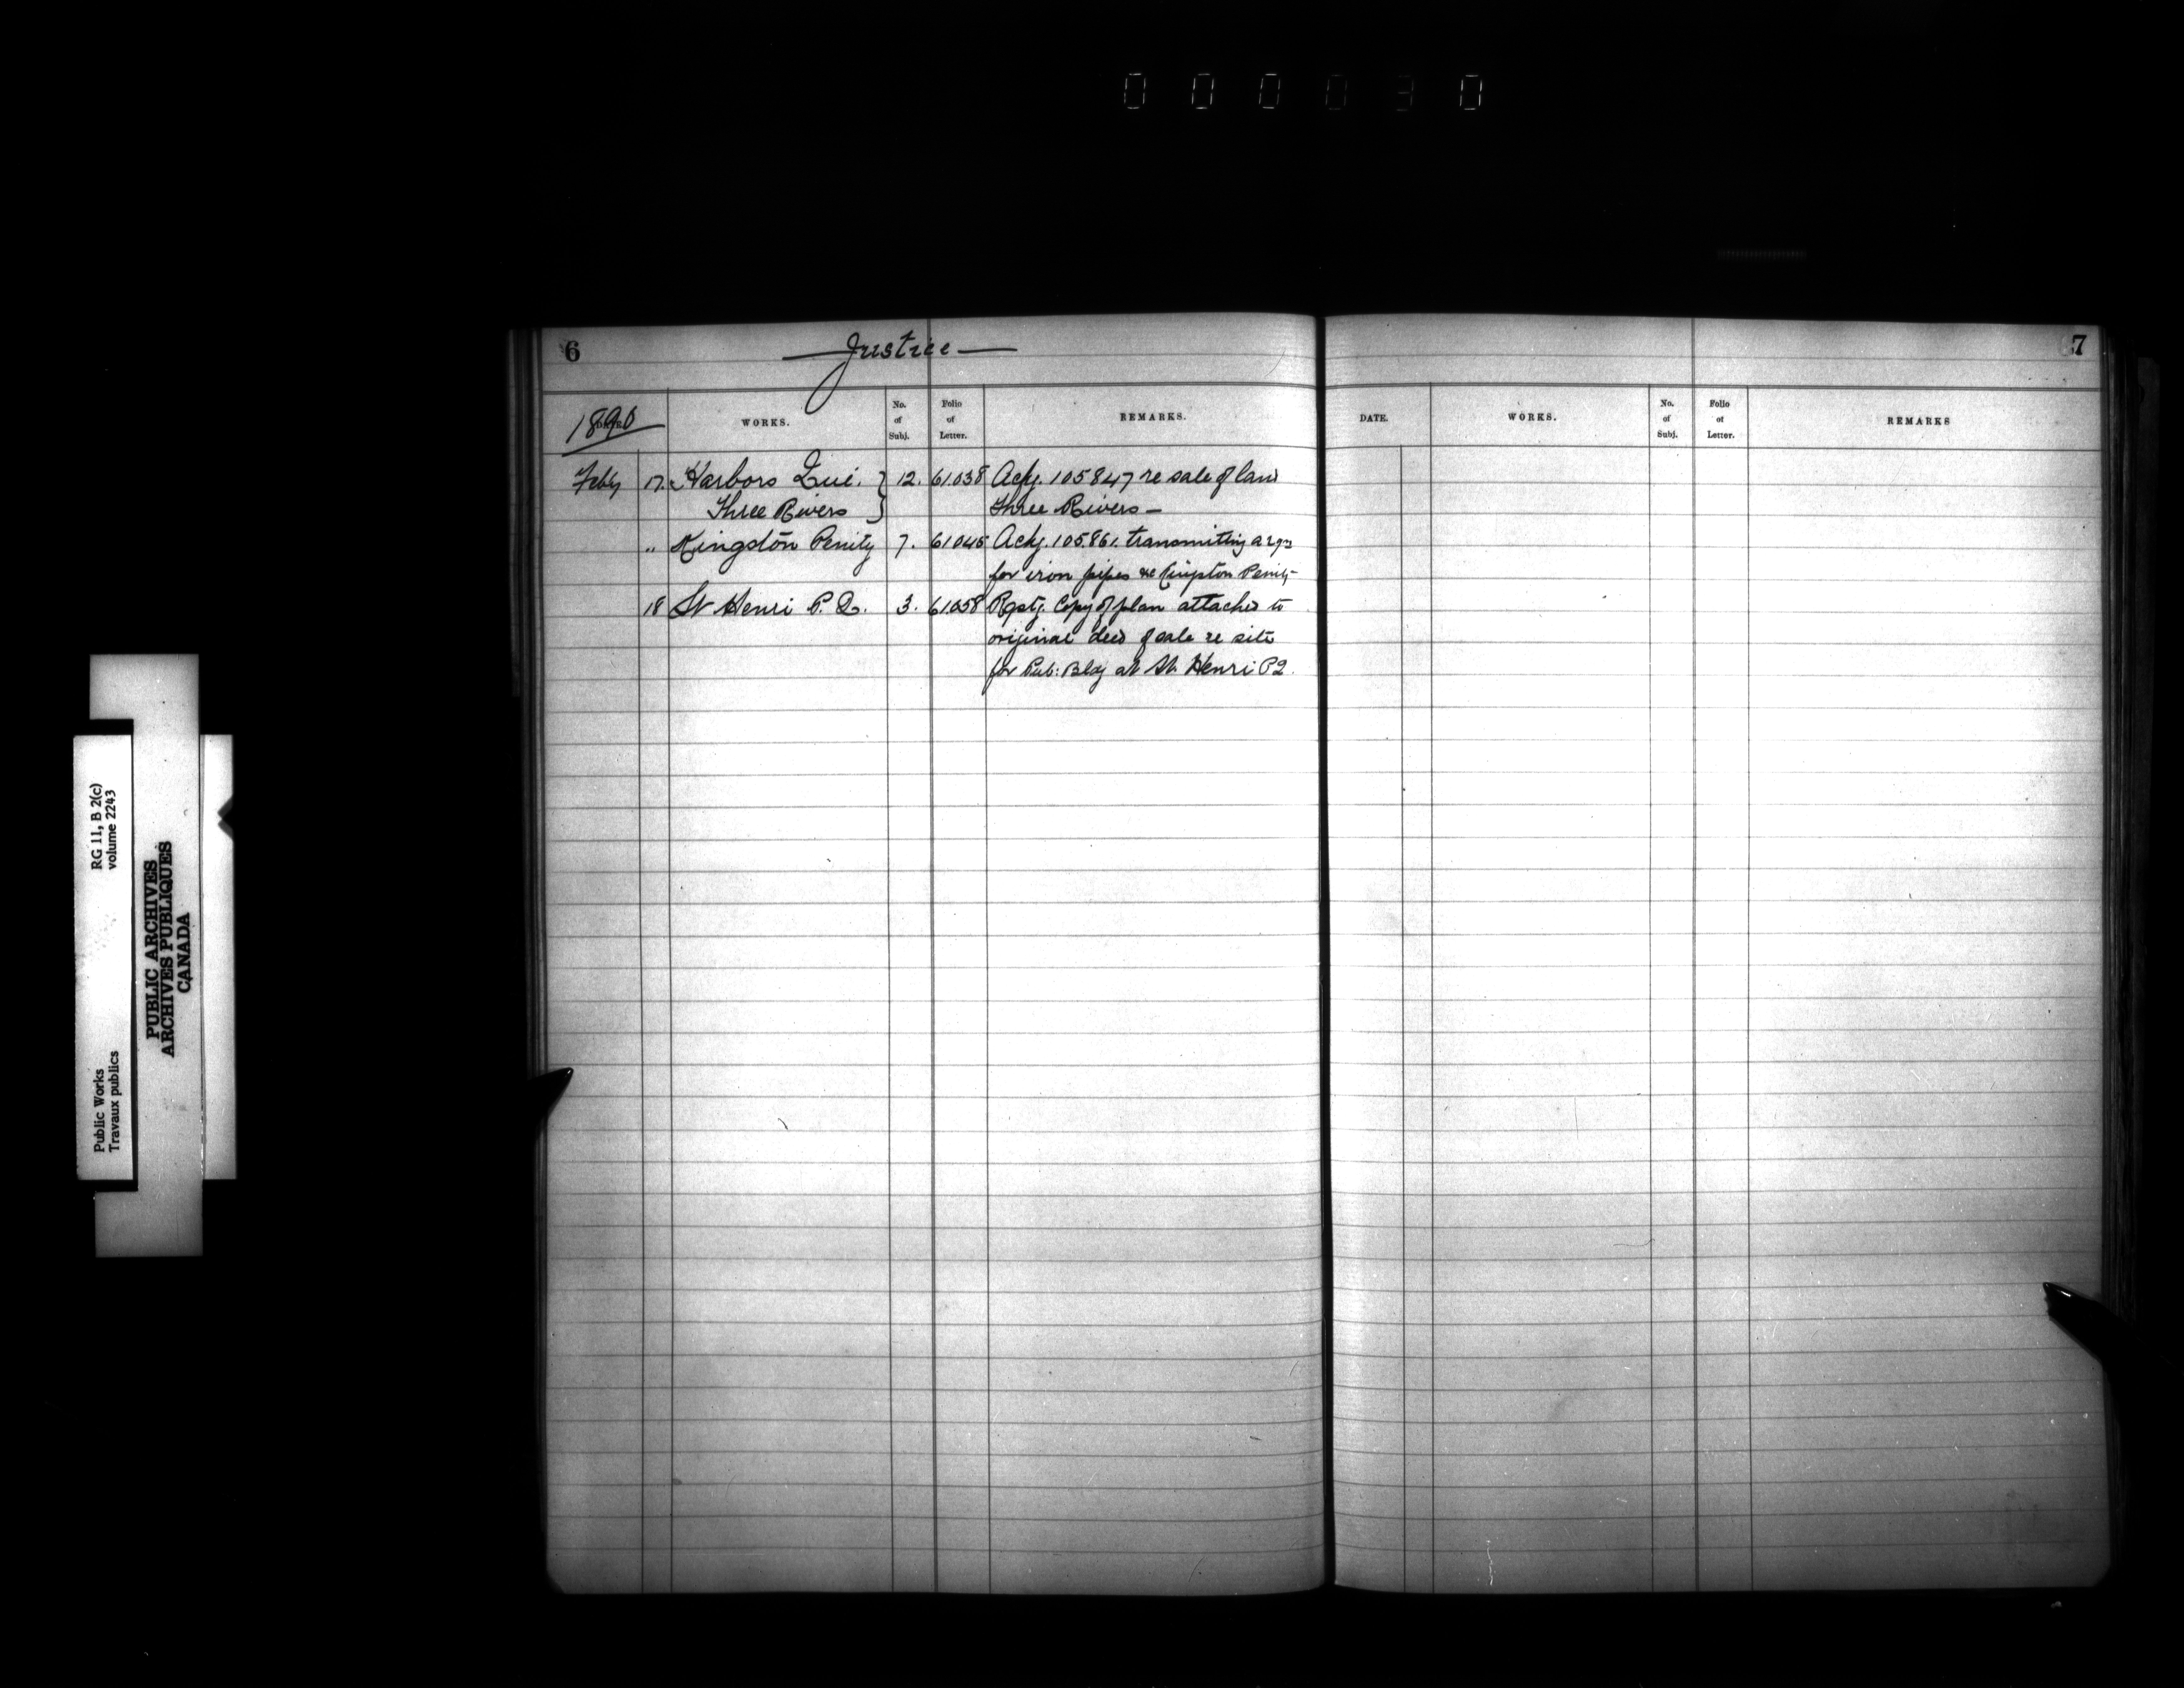 000030
6
Justice
1890
WORKS.
No. of Subj.
Folio of Letter.
REMARKS.
Feby 17. Harbors Que. } 12. 61.038 Ackg. 105847 re sale of land
Three Rivers Three Rivers —
" Kingston Penity 7. 61045 Ackg. 105.861. transmitting a
for iron pipes Kingston Penity
18 St Henri P.Q. 3. 61.058 Rqstg. Copy of plan attached to
original deed of sale re site
for Pub: Bldg at St. Henri PQ.
7
DATE.
WORKS.
No. of Subj.
Folio of Letter.
REMARKS
RG 11, B 2(c)
volume 2243
Public Works
Travaux publics
PUBLIC ARCHIVES
ARCHIVES PUBLIQUES
CANADA